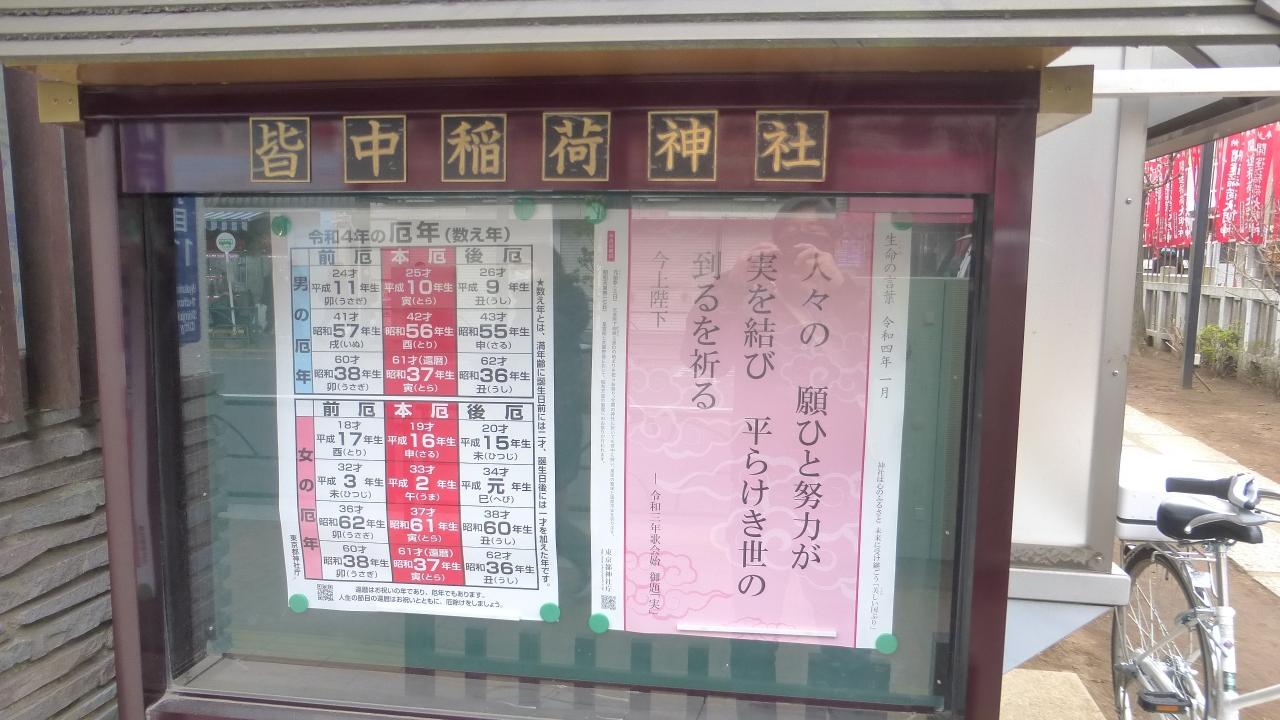 皆中稲荷神社
令和4年の厄年(数え年)
前厄 本厄 後厄
男の厄年
24才 25才 26才
平成11年生 平成10年生 平成9年生
卯(うさぎ) 寅(とら) 丑(うし)
41才 42才 43才
昭和57年生 昭和56年生 昭和55年生
戌(いぬ) 酉(とり) 申(さる)
60才 61才(還暦) 62才
昭和38年生 昭和37年生 昭和36年生
卯(うさぎ) 寅(とら) 丑(うし)
前厄 本厄 後厄
女の厄年
18才 19才 20才
平成17年生 平成16年生 平成15年生
酉(とり) 申(さる) 未(ひつじ)
32才 33才 34才
平成3年生 平成2年生 平成元年生
未(ひつじ) 午(うま) 巳(へび)
36才 37才 38才
昭和62年生 昭和61年生 昭和60年生
卯(うさぎ) 寅(とら) 丑(うし)
60才 61才(還暦) 62才
昭和38年生 昭和37年生 昭和36年生
卯(うさぎ) 寅(とら) 丑(うし)
★数え年とは、満年齢に誕生日前には二才、誕生日後には一才を加えた年です。
還暦はお祝いの年であり、厄年でもあります。
人生の節目の還暦はお祝いとともに、厄除けをしましょう。
東京都神社庁
生命の言葉 令和四年 一月
神社は心のふるさと 未来に受け継ごう「美しい国ぶり」
人々の 願ひと努力が
実を結び 平らけき世の
到るを祈る
今上陛下
― 令和三年歌会始 御題「実」
東京都神社庁